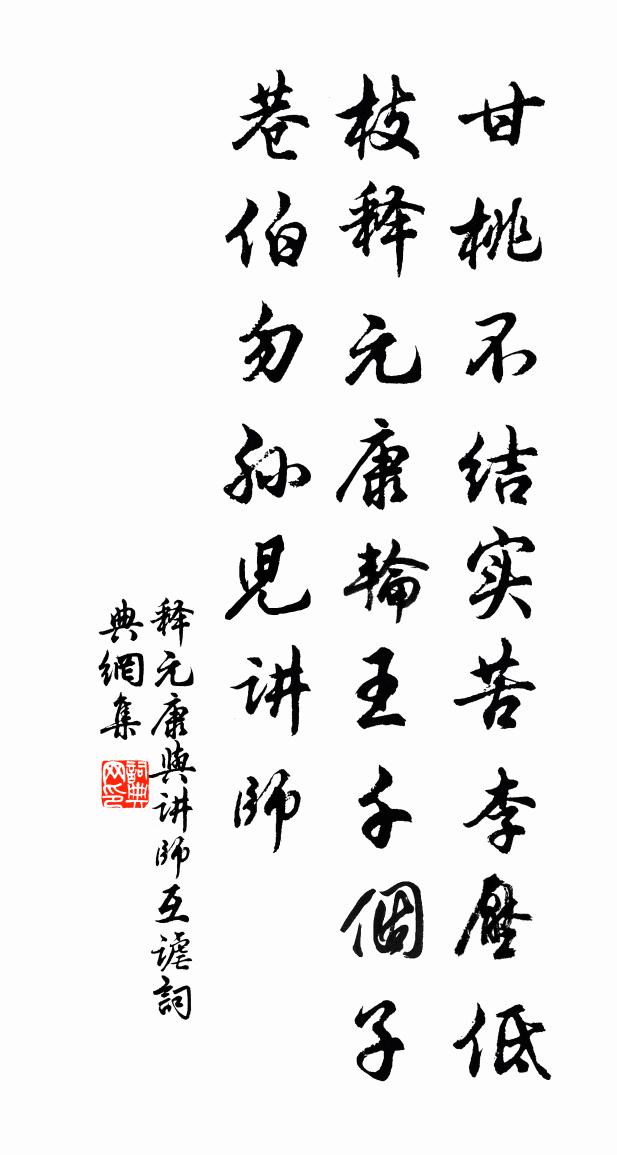 甘桃不结实苦李壓低
枝释元康輪王千個子
巷伯勿孙児讲师
释元康與讲師互謔詞
典網集
詞典网印